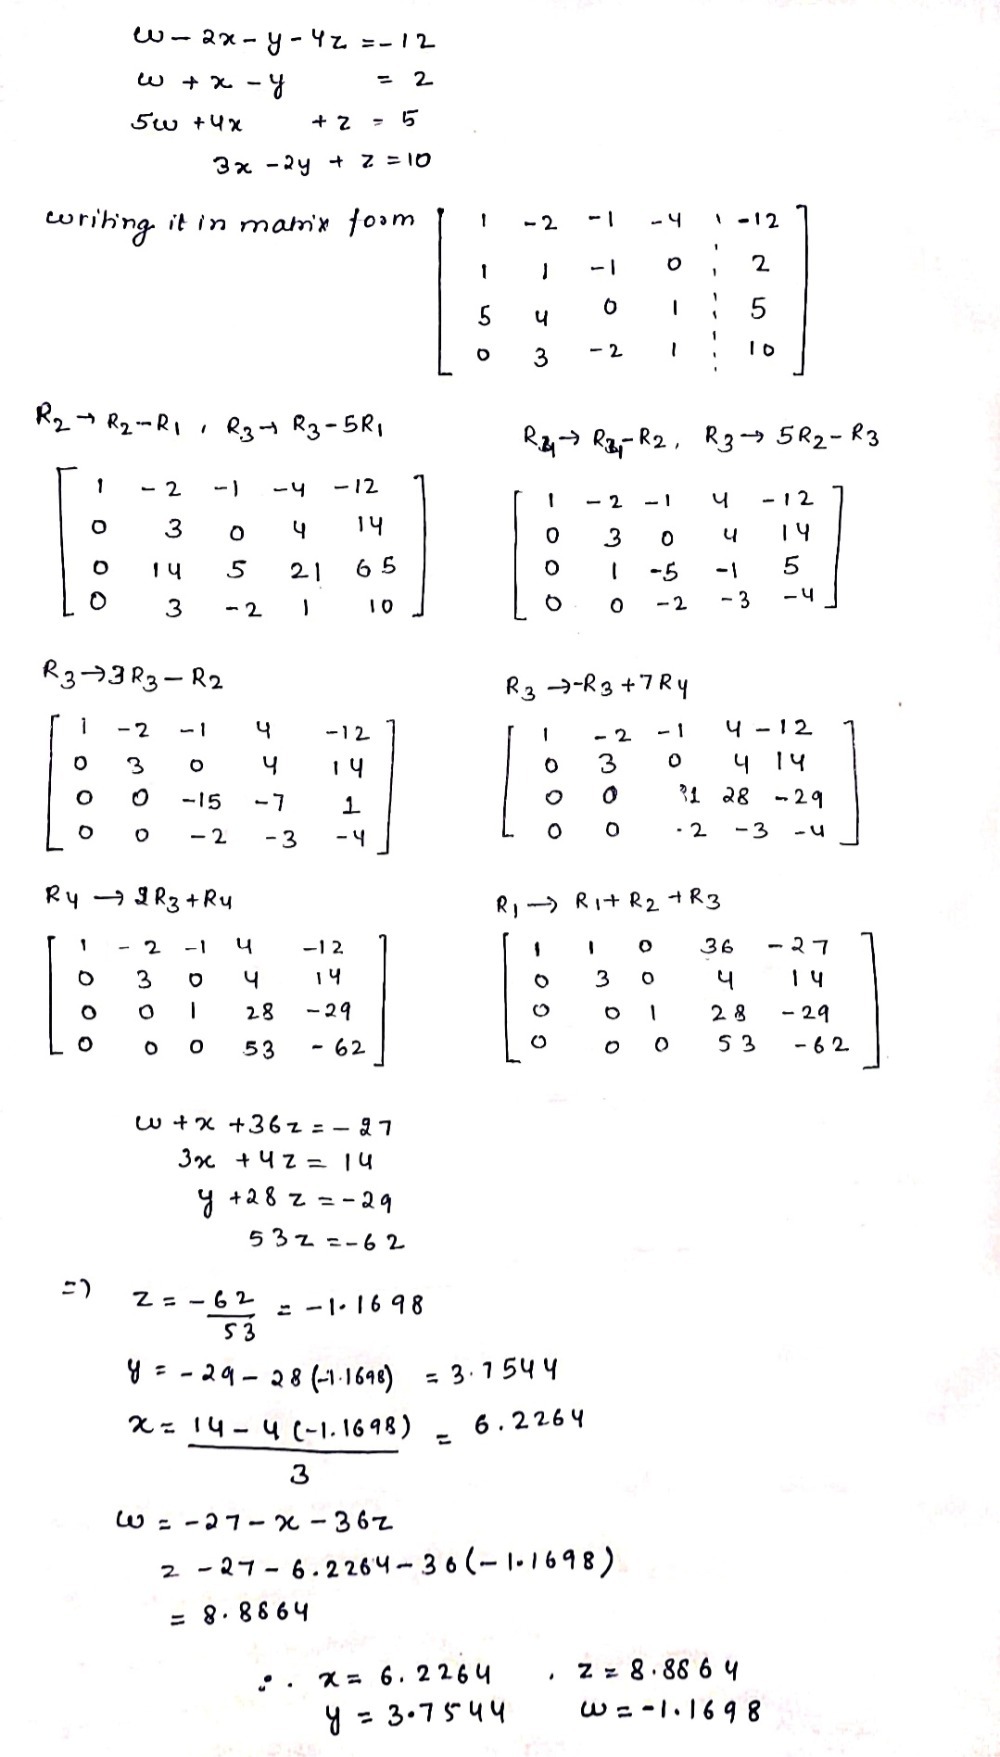 w - 2x - y - 4z = -12
w + x - y = 2
5w + 4x + z = 5
3x - 2y + z = 10
writing it in matrix form
1 -2 -1 -4 -12
1 1 -1 0 2
5 4 0 1 5
0 3 -2 1 10
R2 → R2 - R1, R3 → R3 - 5R1
1 -2 -1 -4 -12
0 3 0 4 14
0 14 5 21 65
0 3 -2 1 10
R4 → R4 - R2, R3 → 5R2 - R3
1 -2 -1 4 -12
0 3 0 4 14
0 1 -5 -1 5
0 0 -2 -3 -4
R3 → 3R3 - R2
1 -2 -1 4 -12
0 3 0 4 14
0 0 -15 -7 1
0 0 -2 -3 -4
R3 → -R3 + 7R4
1 -2 -1 4 -12
0 3 0 4 14
0 0 1 28 -29
0 0 -2 -3 -4
R4 → 2R3 + R4
1 -2 -1 4 -12
0 3 0 4 14
0 0 1 28 -29
0 0 0 53 -62
R1 → R1 + R2 + R3
1 1 0 36 -27
0 3 0 4 14
0 0 1 28 -29
0 0 0 53 -62
w + x + 36z = -27
3x + 4z = 14
y + 28z = -29
53z = -62
=> z = -62/53 = -1.1698
y = -29 - 28(-1.1698) = 3.7544
x = 14 - 4(-1.1698)/3 = 6.2264
w = -27 - x - 36z
= -27 - 6.2264 - 36(-1.1698)
= 8.8864
∴ x = 6.2264, z = 8.8864
y = 3.7544 w = -1.1698